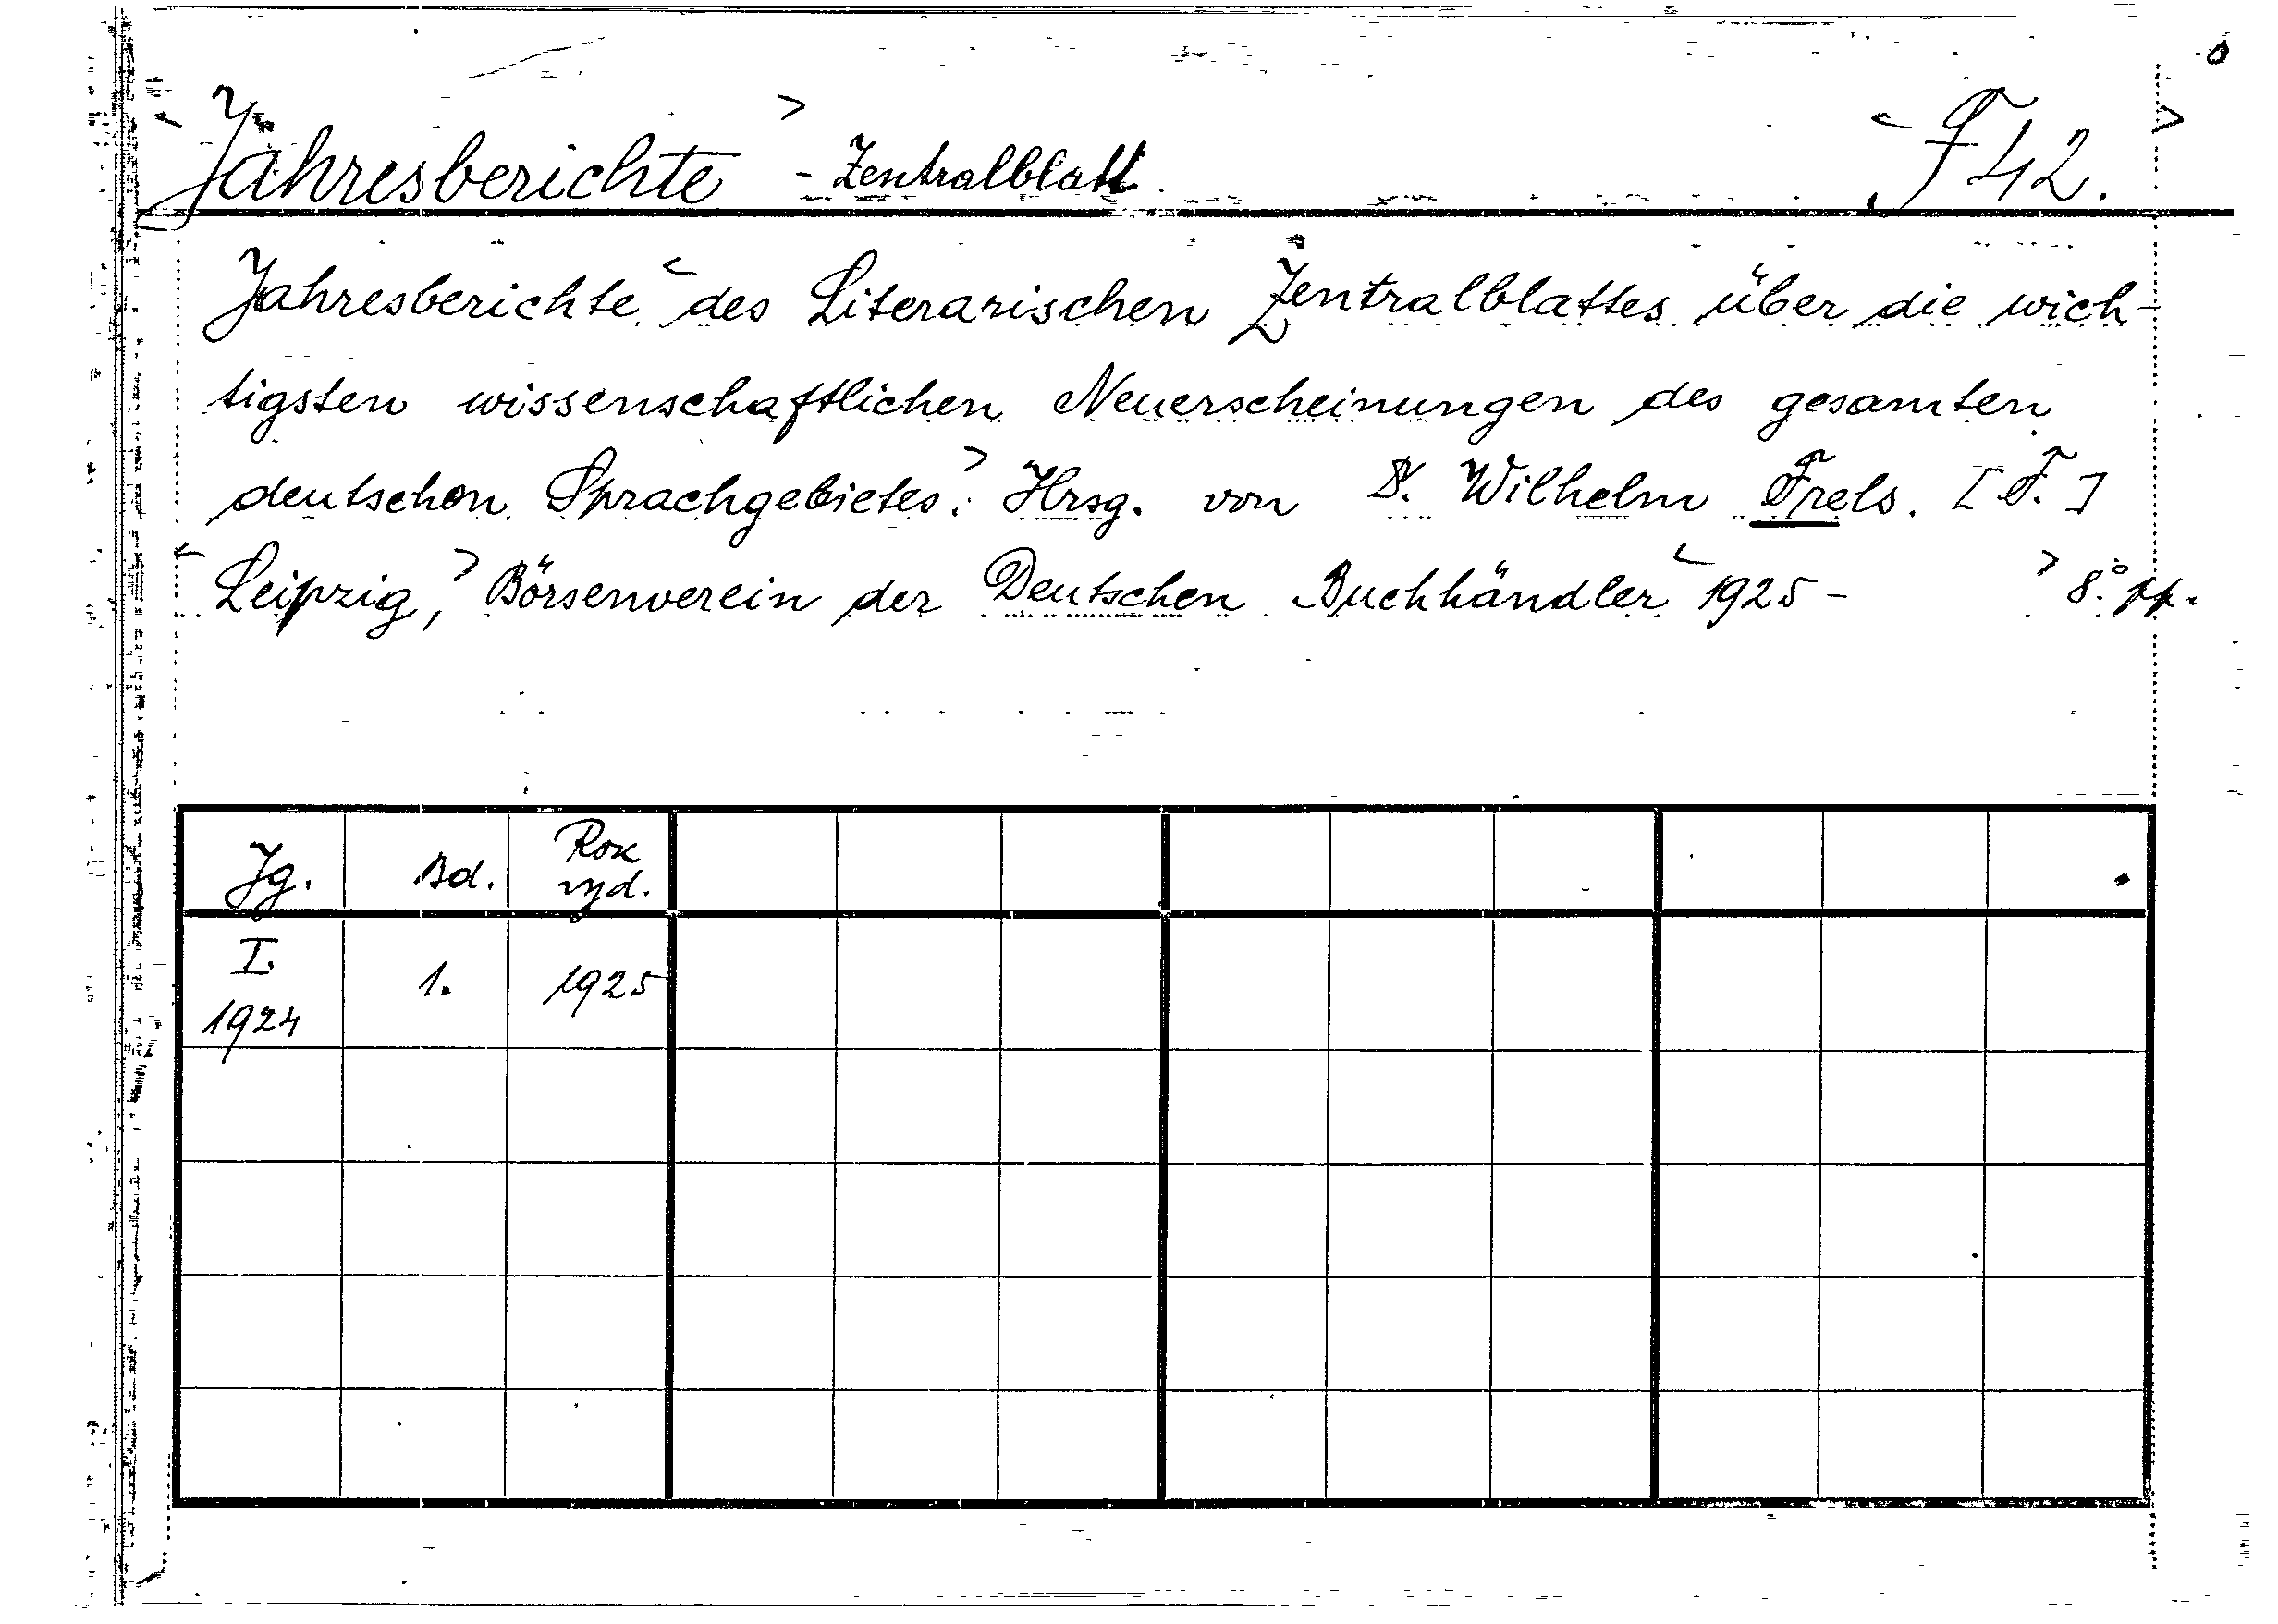 Jahresberichte - Zentralblatt F 42.
Jahresberichte des Literarischen Zentralblattes über die wich-
tigsten wissenschaftlichen Neuerscheinungen des gesamten
deutschen Sprachgebietes. Hrsg. von D. Wilhelm Frels. [F.]
Leipzig, Börsenverein der Deutschen Buchhändler 1925 - 8° pp.
Jg. Bd. Rok
vyd.
I.
1924 1. 1925